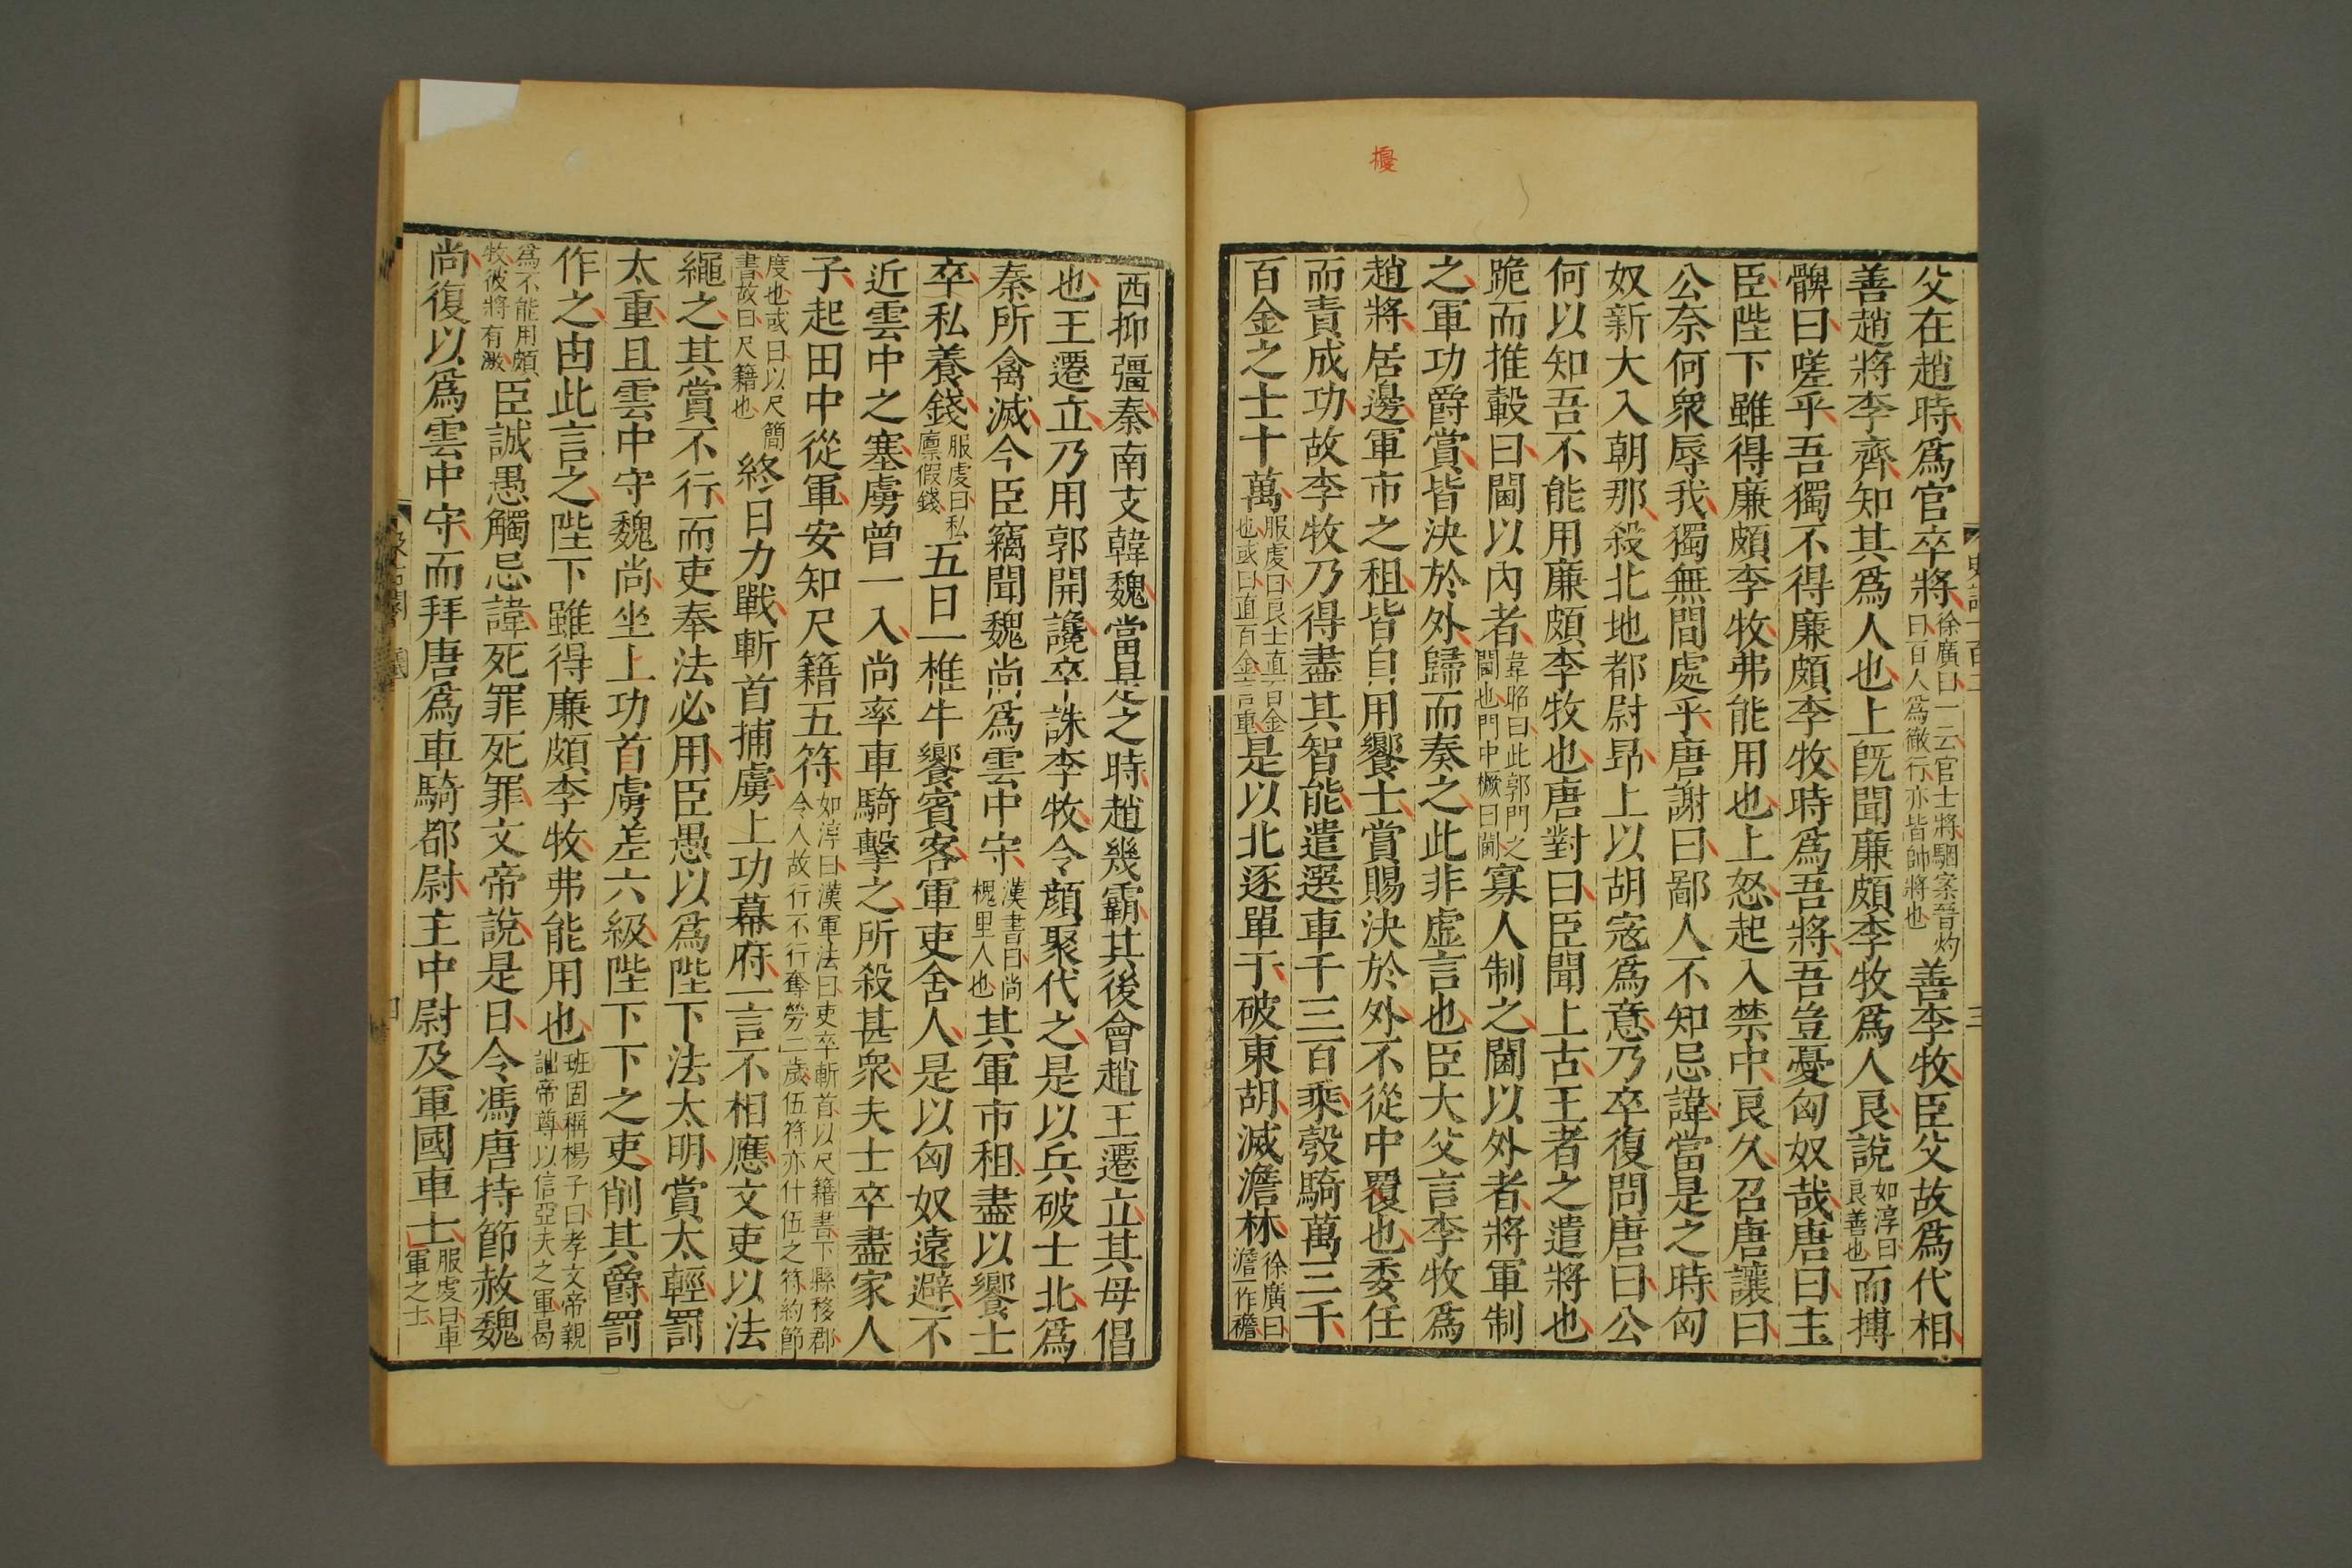 擾
史記一百二
三
父在趙時爲官卒將徐廣曰一云官士將駰案晉灼曰百人爲徹行亦皆帥將也善李牧臣父故爲代相
善趙將李齊知其爲人也上旣聞廉頗李牧爲人良說如淳曰良善也而搏
髀曰嗟乎吾獨不得廉頗李牧時爲吾將吾豈憂匈奴哉唐曰主
臣陛下雖得廉頗李牧弗能用也上怒起入禁中良久召唐讓曰
公奈何衆辱我獨無間處乎唐謝曰鄙人不知忌諱當是之時匈
奴新大入朝那殺北地都尉昻上以胡寇爲意乃卒復問唐曰公
何以知吾不能用廉頗李牧也唐對曰臣聞上古王者之遣將也
跪而推轂曰閫以內者韋昭曰此郭門之閫也門中橛曰閫寡人制之閫以外者將軍制
之軍功爵賞皆決於外歸而奏之此非虛言也臣大父言李牧爲
趙將居邊軍市之租皆自用饗士賞賜決於外不從中覆也委任
而責成功故李牧乃得盡其智能遣選車千三百乘彀騎萬三千
百金之士十萬服虔曰良士直百金也或曰直百金言重是以北逐單于破東胡滅澹林徐廣曰澹一作襜
西抑彊秦南支韓魏當是之時趙幾霸其後會趙王遷立其母倡
也王遷立乃用郭開讒卒誅李牧令顏聚代之是以兵破士北爲
秦所禽滅今臣竊聞魏尚爲雲中守漢書曰尚槐里人也其軍市租盡以饗士
卒私養錢服虔曰私廩假錢五日一椎牛饗賓客軍吏舍人是以匈奴遠避不
近雲中之塞虜曾一入尚率車騎擊之所殺甚衆夫士卒盡家人
子起田中從軍安知尺籍五符如淳曰漢軍法曰吏卒斬首以尺籍書下縣移郡令人故行不行奪勞二歲伍符亦什伍之符約節
度也或曰以尺簡書故曰尺籍也終日力戰斬首捕虜上功幕府一言不相應文吏以法
繩之其賞不行而吏奉法必用臣愚以爲陛下法太明賞太輕罰
太重且雲中守魏尚坐上功首虜差六級陛下下之吏削其爵罰
作之由此言之陛下雖得廉頗李牧弗能用也班固稱楊子曰孝文帝親詘帝尊以信亞夫之軍曷
爲不能用頗牧彼將有激臣誠愚觸忌諱死罪死罪文帝說是日令馮唐持節赦魏
尚復以爲雲中守而拜唐爲車騎都尉主中尉及軍國車士服虔曰車軍之士